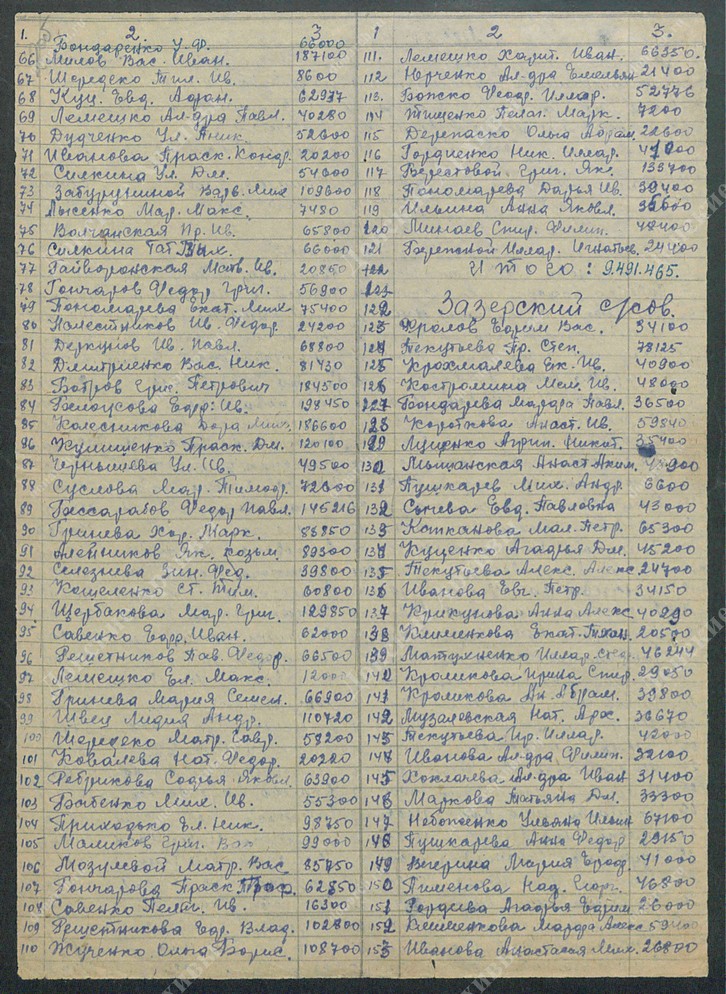 1. 2. 3
Бондаренко У. Ф. 66000
66 Милов Вас. Иван. 187100
67 Шередеко Тим. Ив. 8600
68 Куц. Евд. Афан. 62937
69 Лемешко Ал-дра Павл. 40280
70 Дудченко Ул. Аник. 52600
71 Иванова Праск. Конд. 20200
72 Силкина Ул. Дм. 54600
73 Варв. Мих 109600
74 Лысенко Мар. Макс. 7480
75 Волчанская Пр. Ив. 65800
76 Силкина Тат. Мих. 66600
77 Гайворонская Матв. Ив. 20850
78 Гончаров Федор Григ. 56900
79 Пономарева Екат. Мих 75400
80 Ив. Федор 24200
81 Деркунов Ив. Павл. 68800
82 Дмитриенко Вас. Ник. 81430
83 Григ. Петрович 184500
84 Белоусова Ефр. Ив. 198450
85 Колесникова Дора Мих. 186600
86 Кулишенко Праск. Дм. 120100
87 Чернышева Ул. Ив. 49500
88 Суслова Мар. Тимоф. 72600
89 Бессарабов Федор Павл. 145216
90 Гринева Хар. Марк. 88850
91 Олейников Як. Козьм. 89300
92 Селезнева Зин. Фед. 39800
93 Кошеленко Ст. Тим. 60800
94 Щербакова Мар. Григ. 129850
95 Савенко Ефр. Иван. 62000
96 Решетников Пав. Федор. 66500
97 Лемешко Ел. Макс. 12000
98 Гринева Мария Семен. 66900
99 Швец Лидия Андр. 110720
100 Шередеко Матр. Савр. 58200
101 Ковалева Нат. Федор 20200
102 Ребрикова Софья Яковл. 63900
103 Бабенко Мих. Ив. 55300
104 Приходько Ел. Ник. 98750
105 Маликов Григ. Вас 99000
106 Мозулевой Матр. Вас 85750
107 Гончарова Праск. Проф. 62850
108 Савенко Пелаг. Ив. 16300
109 Решетникова Ефр. Влад. 102800
110 Жученко Ольга Борис. 108700
1 2 3.
111. Лемешко Харит. Иван. 66350.
112 Юрченко Ал-дра Емельян 21400
113. Божко Федр. Иллар. 52776
114 Тищенко Пелаг. Марк. 7200
115 Дерепаско Ольга Абрам 22600
116 Гордиенко Ник. Иллар.
117 Берестовой Григ. Як. 133700
118 Пономарева Дарья Ив. 39400
119 Ильина Анна Яковл.
120 Минаев Спир. Филип. 48400
121 Бережной Иллар. Игнатьев. 24400
122 Итого: 9.491.465.
123
122 Зазерский с/сов.
123 Фролов Ефрем Вас. 34100
124 Текутьева Пр. Степ. 78125
125 Крохмалева Ек. Ив. 40900
126 Костромина Мел. Ив. 48000
127 Бондарева Марфа Павл. 36500
128 Короткова Анаст. Ив. 59840
129 Луценко Агрип. Никит. 35400
130 Мещанская Анаст Аким.
131 Пушкарев Мих. Андр. 6600
132 Сычева Евд. Павловна 43000
133 Колканова Мал. Петр. 65300
134 Куценко Агафья Дм. 45200
135 Текутьева Алекс. Алекс 24700
136 Иванова Евг. Петр. 34150
137 Крикунова Анна Алекс.
138 Клименкова Екат. 20500
139 Матухненко Иллар. Степ. 46244
140 Кроликова Ирина Спир. 29050
141 Кроликова Ан. Абрам. 39800
142 Музалевская Нат. Арх. 36670
143 Текутьева Ир. Иллар. 42000
144 Иванова Ал-дра Филип. 32100
145 Хохлачева Ал-дра Иван 31400
146 Маркова Татьяна Дм. 33300
147 Небопсенко Ульяна Ильин 67100
148 Пушкарева Анна Федор 29150
149 Вечерина Мария Ероф. 41000
150 Пименова Над. Георг. 46800
151 Гордеева Агафья Ефрем 26000
152 Клименкова Марфа Алекс 59400
153 Иванова Анастасия Мих. 26800